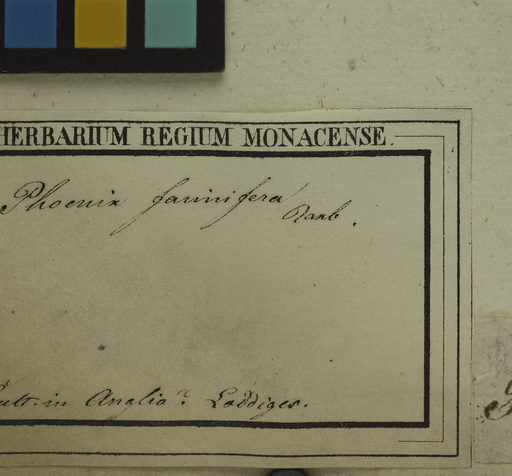 HERBARIUM REGIUM MONACENSE.
Phoenix farinifera
Roxb.
Cult. in Anglia? Loddiges.